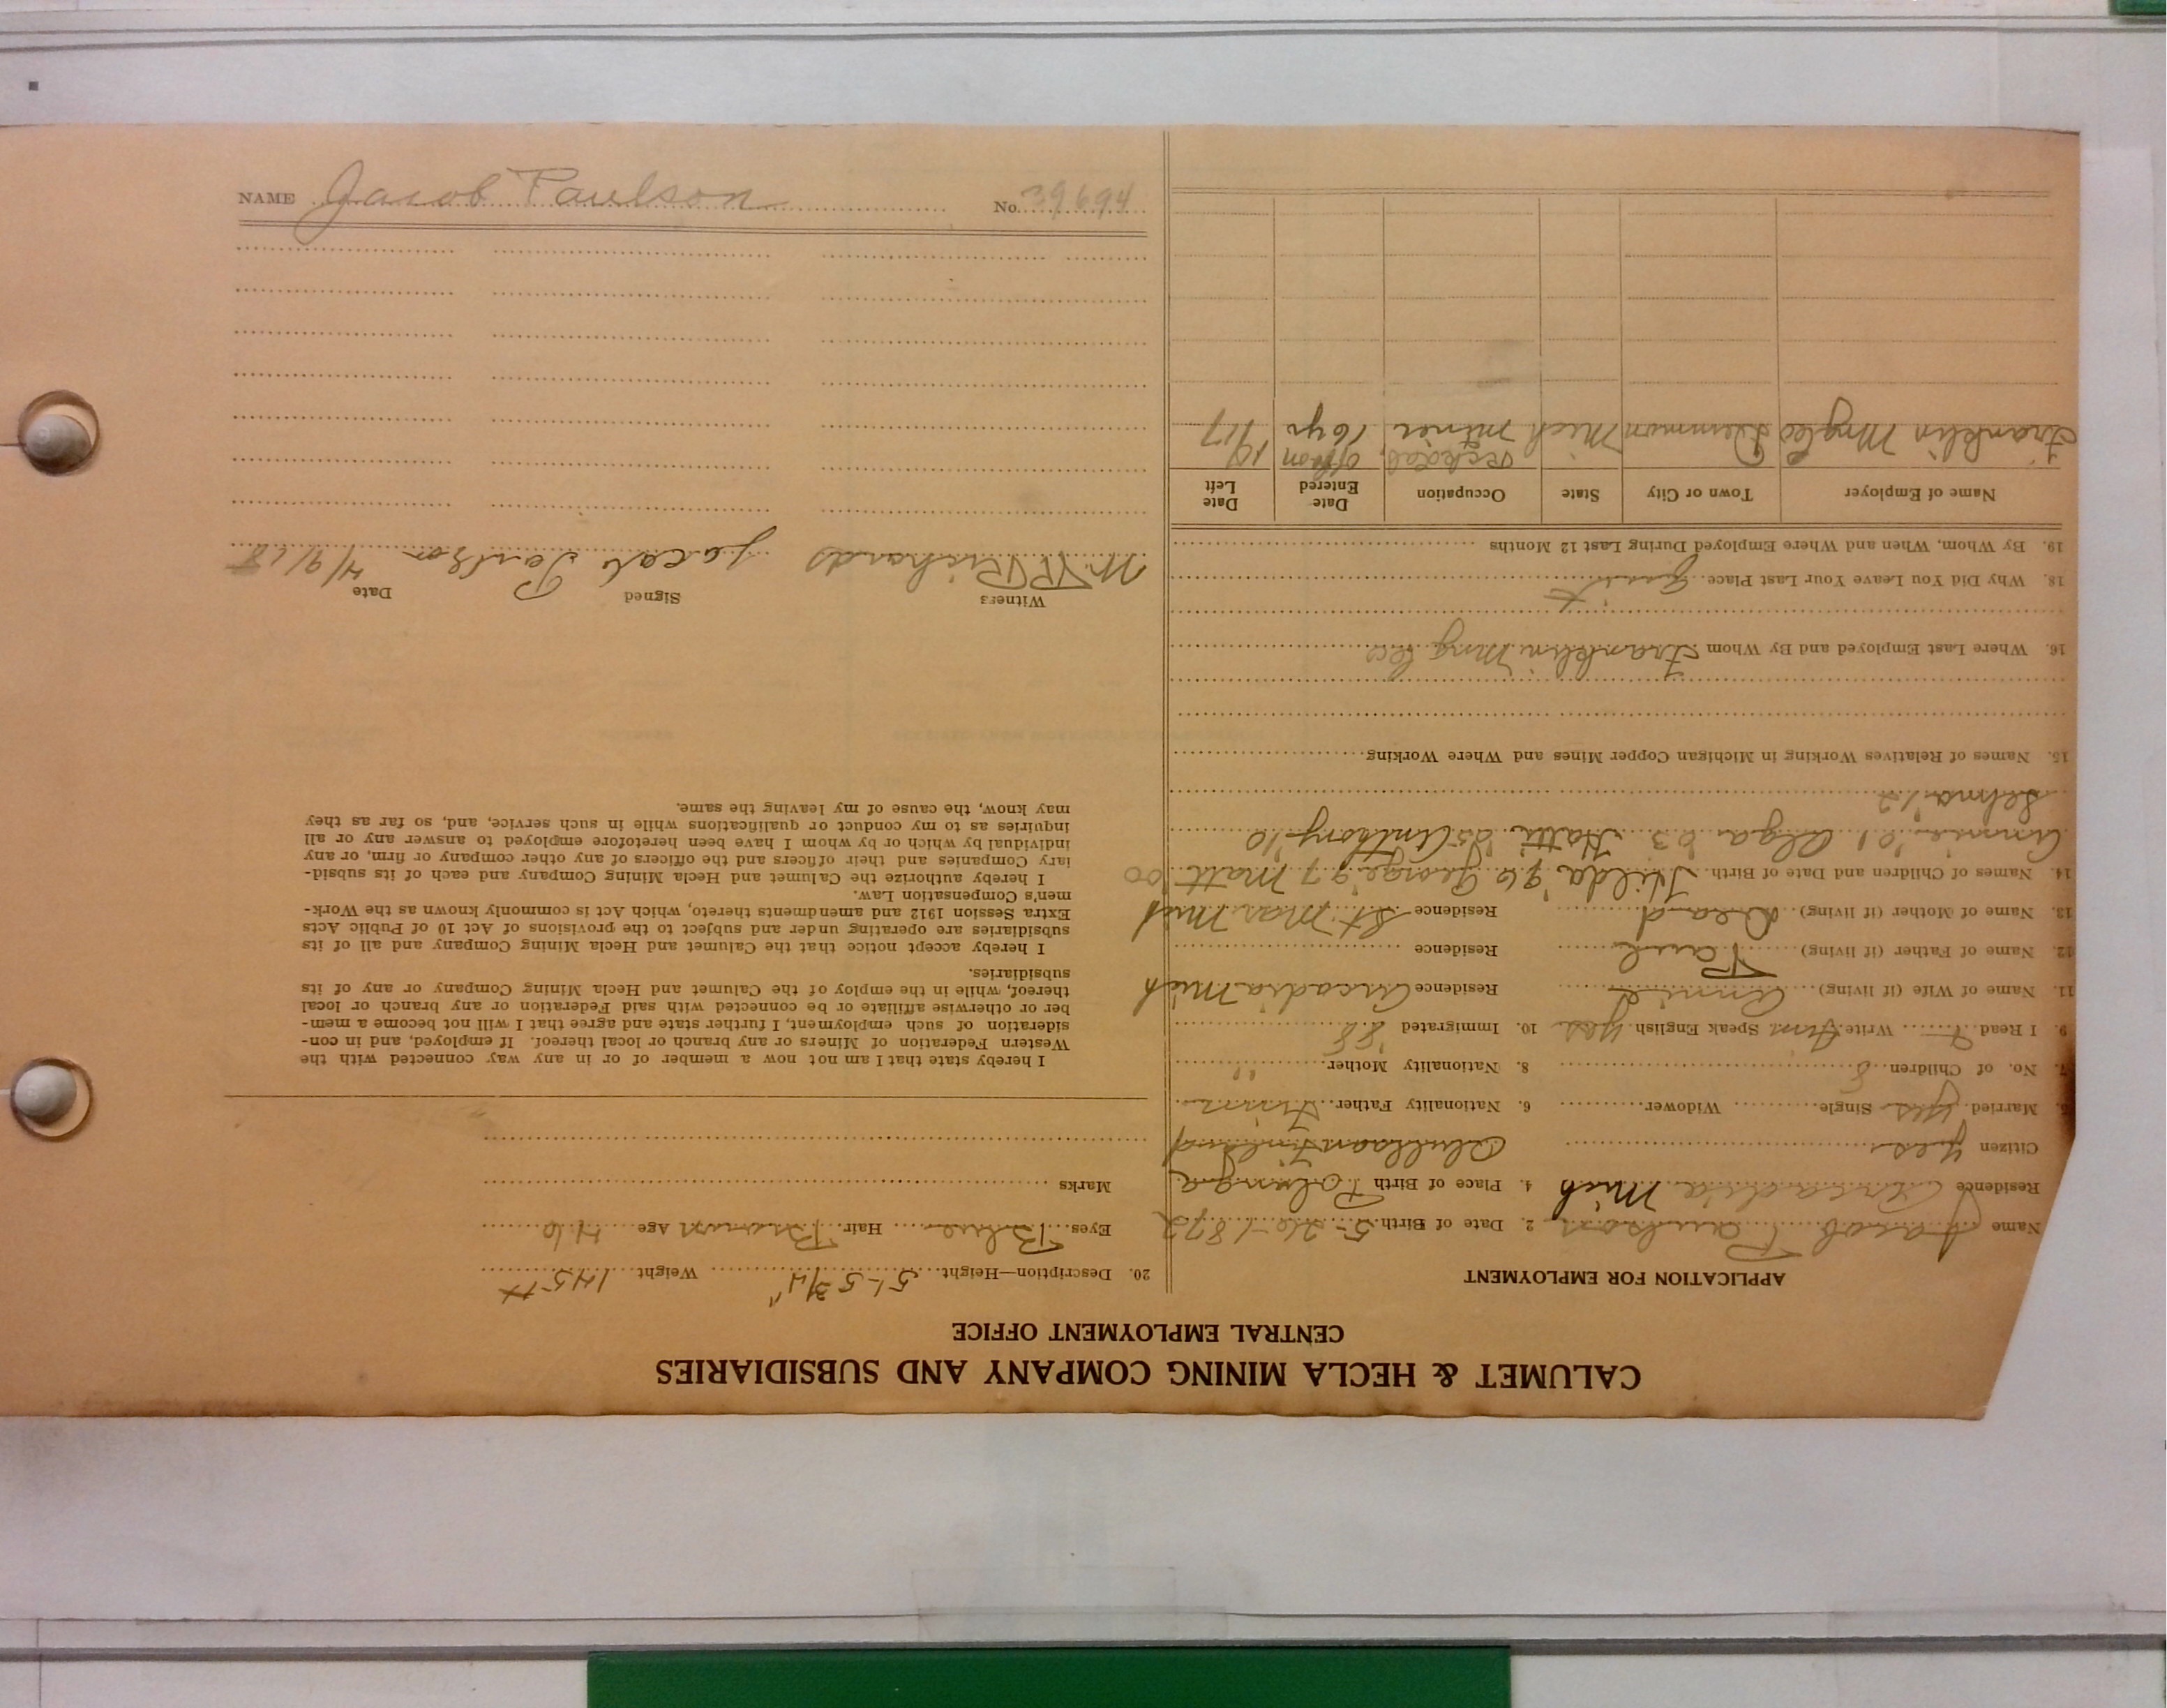 CALUMET & HECLA MINING COMPANY AND SUBSIDIARIES
CENTRAL EMPLOYMENT OFFICE
APPLICATION FOR EMPLOYMENT
Name Jacob Paulson 2. Date of Birth 5-26-1872
Residence Arcadia Mich 4. Place of Birth
Citizen yes Finland
5. Married yes Single Widower 6. Nationality Father Finn
7. No. of Children 8 8. Nationality Mother "
9. I Read F Write Finn Speak English yes 10. Immigrated '88
11. Name of Wife (if living) Annie Residence Arcadia Mich
12. Name of Father (if living) Paul Residence
13. Name of Mother (if living) Dead Residence
14. Names of Children and Date of Birth. Hilda '96 George '97 Matt '00
Annie '01 Olga '03 '05 Anthony '10
Selma '12
15. Names of Relatives Working in Michigan Copper Mines and Where Working
16. Where Last Employed and By Whom Franklin Mng Co
18. Why Did You Leave Your Last Place Quit
19. By Whom, When and Where Employed During Last 12 Months
Name of Employer Town or City State Occupation Date Entered Date Left
Franklin Mng Co Demmon Mich miner off & on 16 yr 1917
20. Description—Height 5'-5 3/4" Weight 145 #
Eyes Blue Hair Brown Age 46
Marks
I hereby state that I am not now a member of or in any way connected with the
Western Federation of Miners or any branch or local thereof. If employed, and in con-
sideration of such employment, I further state and agree that I will not become a mem-
ber or otherwise affiliate or be connected with said Federation or any branch or local
thereof, while in the employ of the Calumet and Hecla Mining Company or any of its
subsidiaries.
I hereby accept notice that the Calumet and Hecla Mining Company and all of its
subsidiaries are operating under and subject to the provisions of Act 10 of Public Acts
Extra Session 1912 and amendments thereto, which Act is commonly known as the Work-
men's Compensation Law.
I hereby authorize the Calumet and Hecla Mining Company and each of its subsid-
iary Companies and their officers and the officers of any other company or firm, or any
individual by which or by whom I have been heretofore employed to answer any or all
inquiries as to my conduct or qualifications while in such service, and, so far as they
may know, the cause of my leaving the same.
Witness Signed Date
Richards Jacob Paulson 4/9/18
NAME Jacob Paulson No. 39694